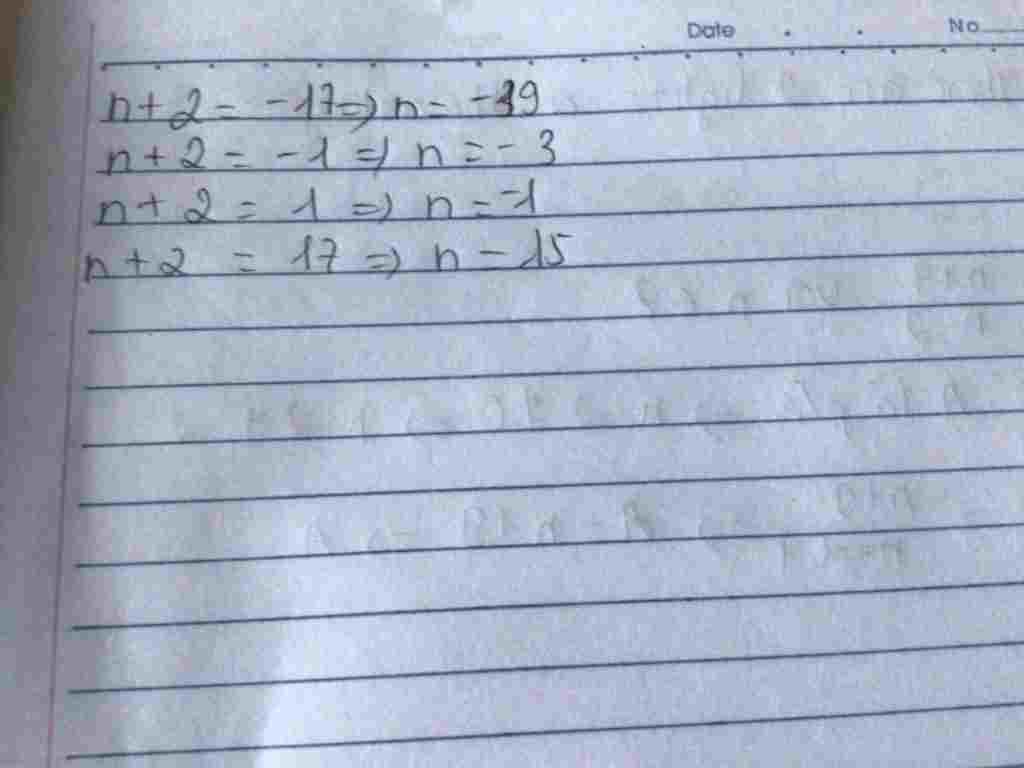 Date No
n + 2 = -17 => n = -19
n + 2 = -1 => n = -3
n + 2 = 1 => n = -1
n + 2 = 17 => n = 15